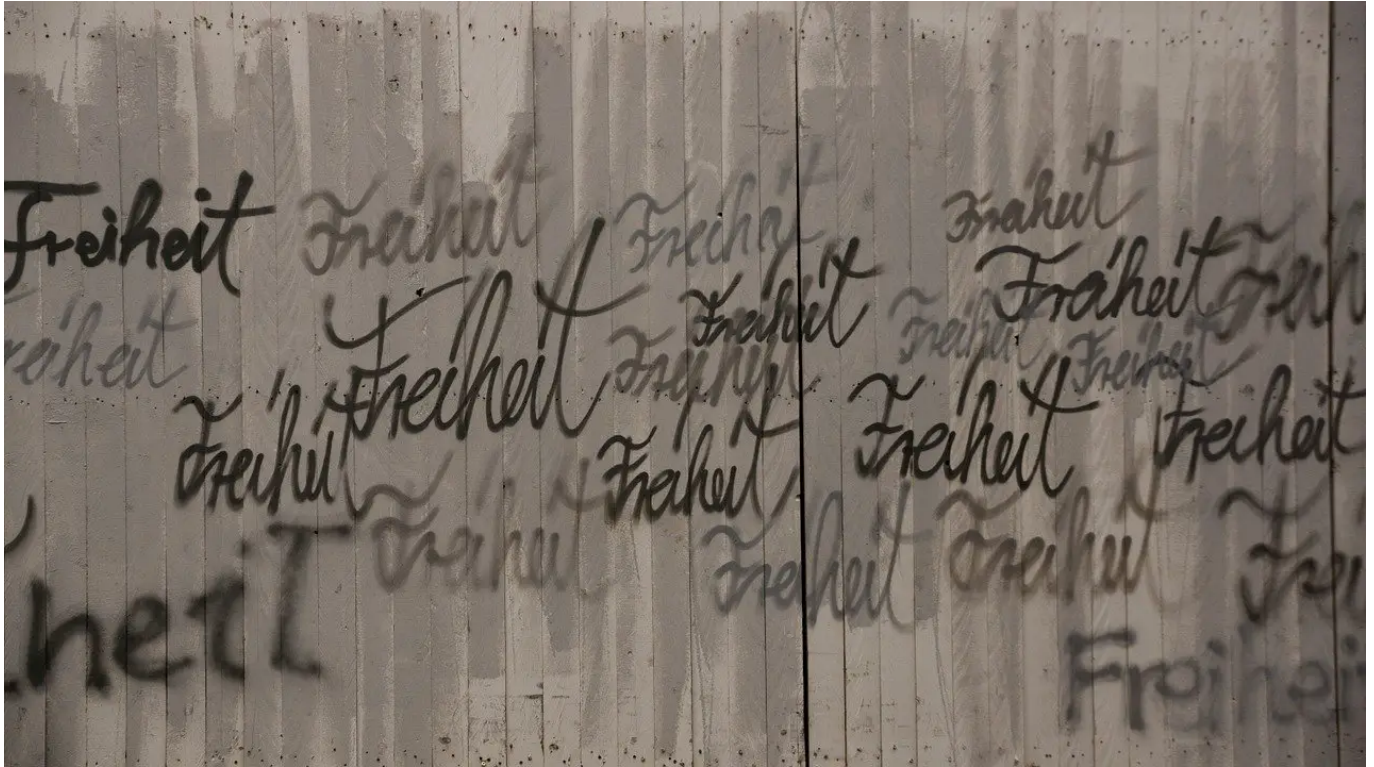 Freiheit
Freiheit
Freiheit
Freiheit
Freiheit
Freiheit
Freih
reiheit
Freiheit
Freiheit
Freiheit
Freiheit
Freiheit
Freiheit
Freiheit
Freiheit
Freiheit
Freiheit
Freiheit
Freiheit
Frei
heit
Freihei